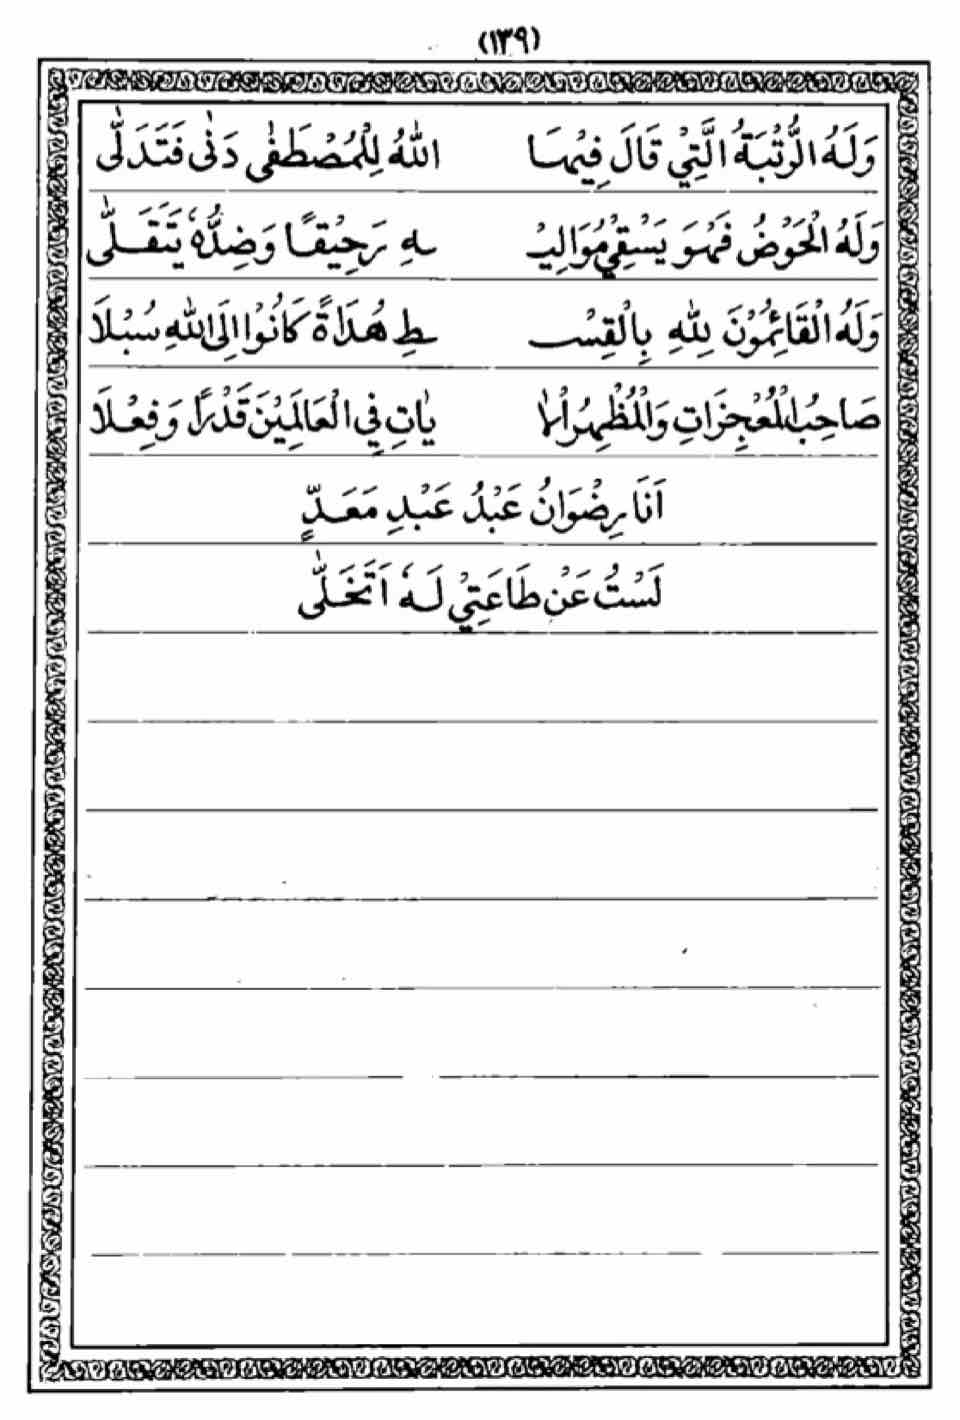 (١٣٩)
وَلَهُ الرُّتْبَةُ الَّتِيْ قَالَ فِيْهَا اللّٰهُ لِلْمُصْطَفٰى دَنٰى فَتَدَلّٰى
وَلَهُ الْحَوْضُ فَهُوَ يَسْقِيْ مُوَالِيْـ ـهِ رَحِيْقًا وَضِدُّهٗ يَتَقَلّٰى
وَلَهُ الْقَائِمُوْنَ لِلّٰهِ بِالْقِسْـ ـطِ هُدَاةً كَانُوْا اِلَى اللّٰهِ سُبْلَا
صَاحِبُ الْمُعْجِزَاتِ وَالْمُظْهِرُ الْاٰ يَاتِ فِي الْعَالَمِيْنَ قَدْرًا وَفِعْلَا
اَنَا رِضْوَانُ عَبْدُ عَبْدِ مَعَدٍّ
لَسْتُ عَنْ طَاعَتِيْ لَهٗ اَتَخَلّٰى